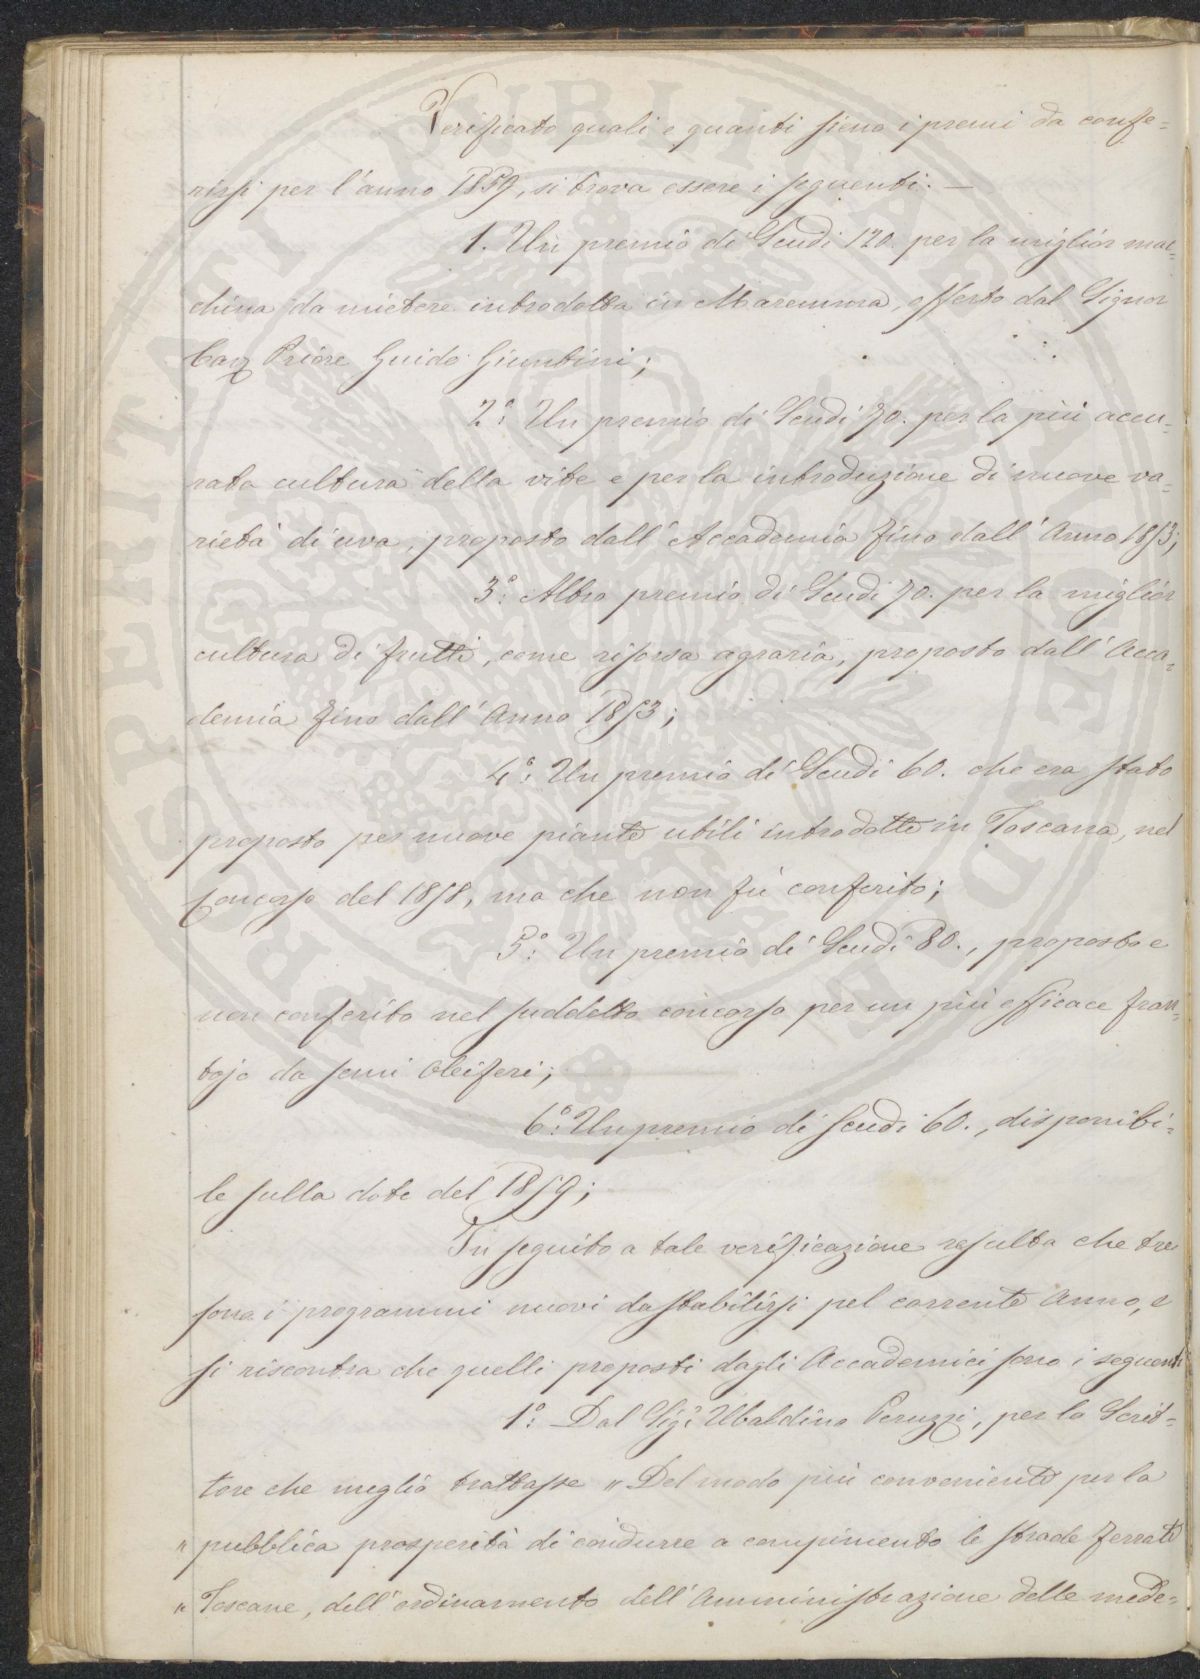 Verificato quali e quanti sieno i premi da confe=
rirsi per l'anno 1859, si trova essere i seguenti. —
1. Un premio di Scudi 120. per la miglior mac=
china da mietere introdotta in Maremma, offerto dal Signor
Cav Priore Guido Giuntini;
2°: Un premio di Scudi 70. per la più accu=
rata cultura della vite e per la introduzione di nuove va=
rietà di uva, proposto dall'Accademia fino dall'Anno 1853;
3°: Altro premio di Scudi 70. per la miglior
cultura di frutti, come risorsa agraria, proposto dall'Acca=
demia fino dall'Anno 1853;
4°: Un premio di Scudi 60. che era stato
proposto per nuove piante utili introdotte in Toscana, nel
Concorso del 1858, ma che non fù conferito;
5°: Un premio di Scudi 80., proposto e
non conferito nel suddetto concorso per un più efficace fran=
tojo da semi oleiferi;
6°: Un premio di Scudi 60., disponibi=
le sulla dote del 1859;
In seguito a tale verificazione resulta che tre
sono i programmi nuovi da stabilirsi pel corrente Anno, e
si riscontra che quelli proposti dagli Accademici sono i seguenti
1°: Dal Sig: Ubaldino Peruzzi, per lo Scrit=
tore che meglio trattasse „ Del modo più conveniente per la
„ pubblica prosperità di condurre a compimento le strade ferrate
„ Toscane, dell'ordinamento dell'Amministrazione delle mede=
PROSPERITATI PUBLICAE AUGENDAE